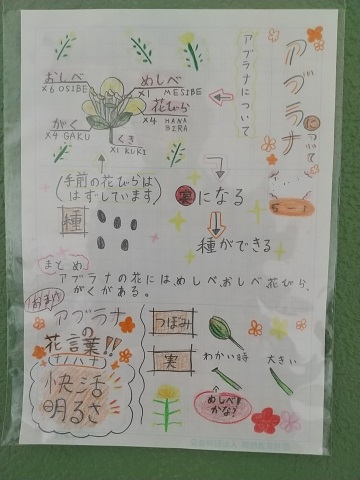 アブラナ
について
5-1
アブラナについて
おしべ
×6 OSIBE
めしべ
×1 MESIBE
花びら
×4 HANA
BIRA
がく
×4 GAKU
くき
×1 KUKI
(手前の花びらは
はずしています)
実になる
種
種ができる
まとめ
アブラナの花には、めしべ、おしべ花びら、
がくがある。
おまけ
アブラナ
の
花言葉!!
ナノハナ
快活
明るさ
つぼみ
実
わかい時
大きい
めしべ
かな?